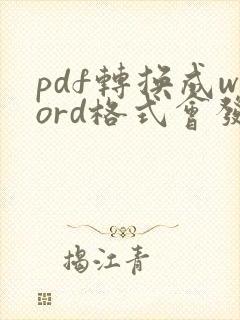 pdf轉換成w
ord格式會發
揭江青